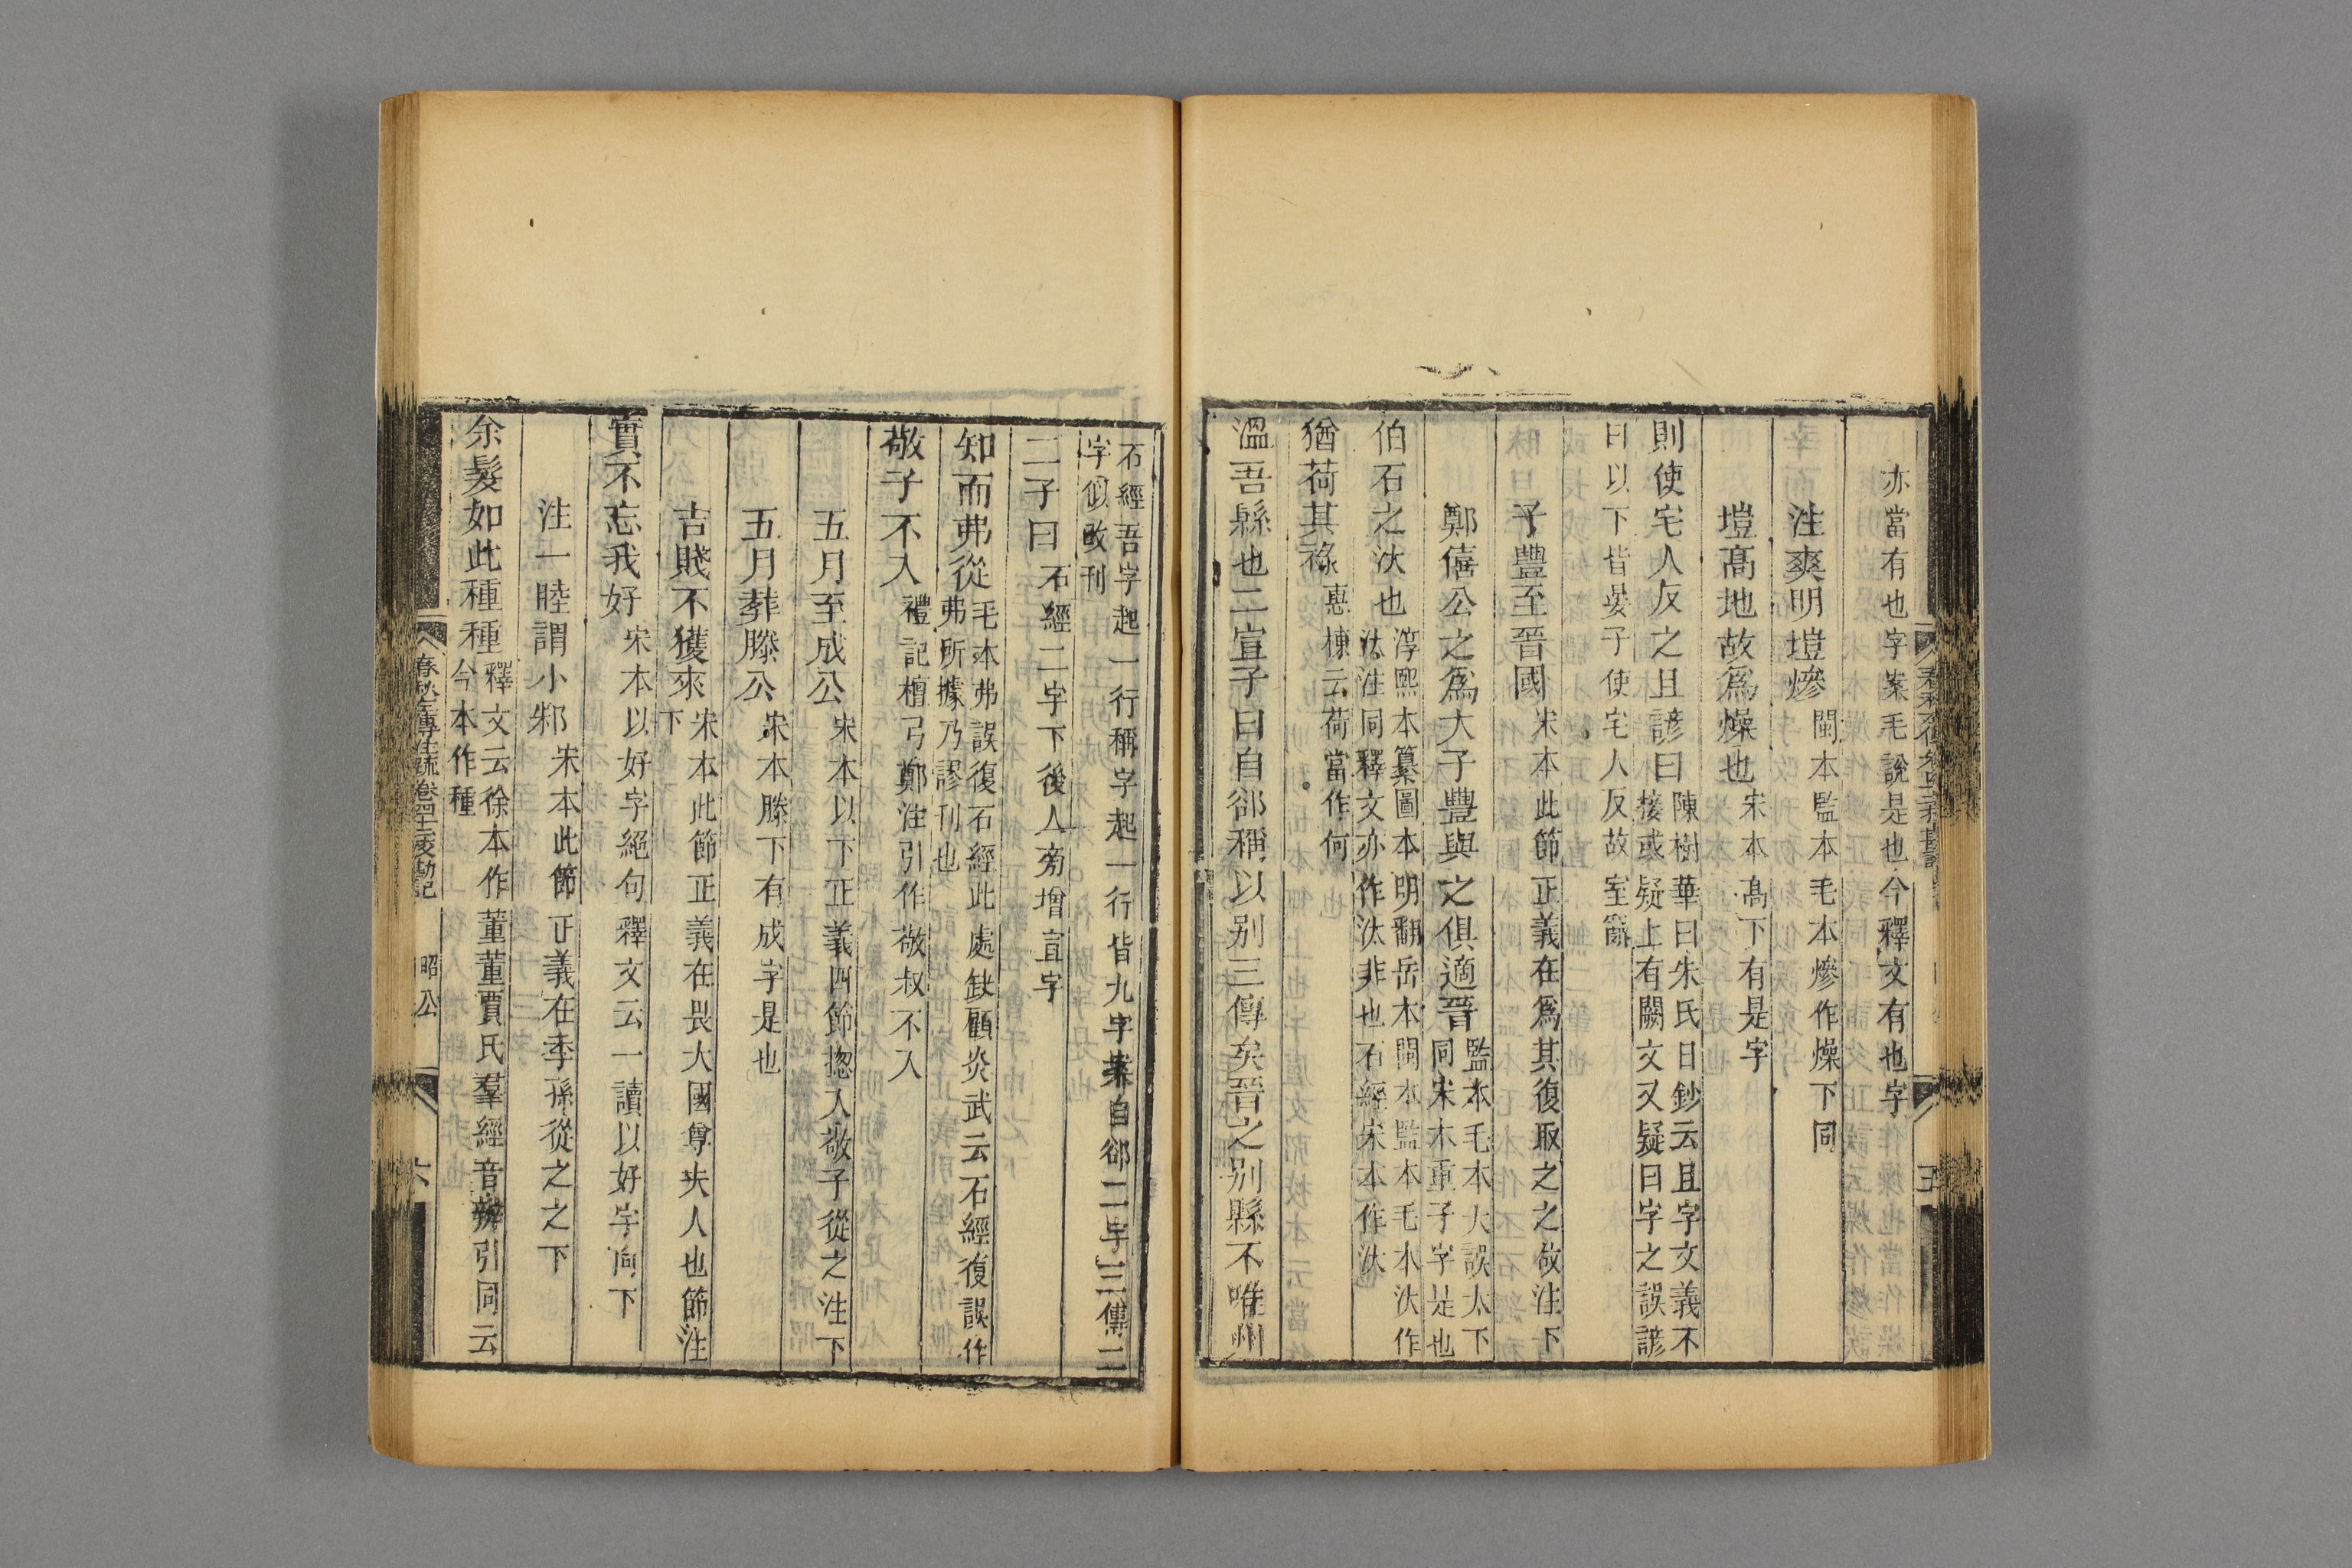 亦當有也字案毛說是也今釋文有也字
注爽明塏燥閩本監本毛本慘作燥下同
塏高地故爲燥也宋本高下有是字
則使宅人反之且諺曰陳樹華曰朱氏日鈔云且字文義不
接或疑上有闕文又疑曰字之誤諺
曰以下皆晏子使宅人反故室辭
子豐至晉國宋本此節正義在爲其復取之之故注下
鄭僖公之爲大子豐與之俱適晉監本毛本大誤太下
同宋本重子字是也
伯石之汰也淳熙本纂圖本明翻岳本閩本監本毛本汰作
汏注同釋文亦作汰非也石經宋本作汰
猶荷其祿惠棟云荷當作何
溫吾縣也二宣子曰自郤稱以别三傳矣晉之别縣不唯州
石經吾字起一行稱字起一行皆九字案自郤二字三傳二
字似改刊
二子曰石經二字下後人旁增宣字
知而弗從毛本弗誤復石經此處缺顧炎武云石經復誤作
弗所據乃謬刊也
敬子不入禮記檀弓鄭注引作敬叔不入
五月至成公宋本以下正義四節揔入敬子從之注下
五月葬滕公宋本滕下有成字是也
吉賤不獲來宋本此節正義在畏大國尊夫人也節注
下
實不忘我好宋本以好字絕句釋文云一讀以好字向下
注一睦謂小邾宋本此節正義在季孫從之之下
余髮如此種種釋文云徐本作董董賈氏羣經音辨引同云
今本作種
春秋左傳注疏卷四十二校勘記
昭公
六
五